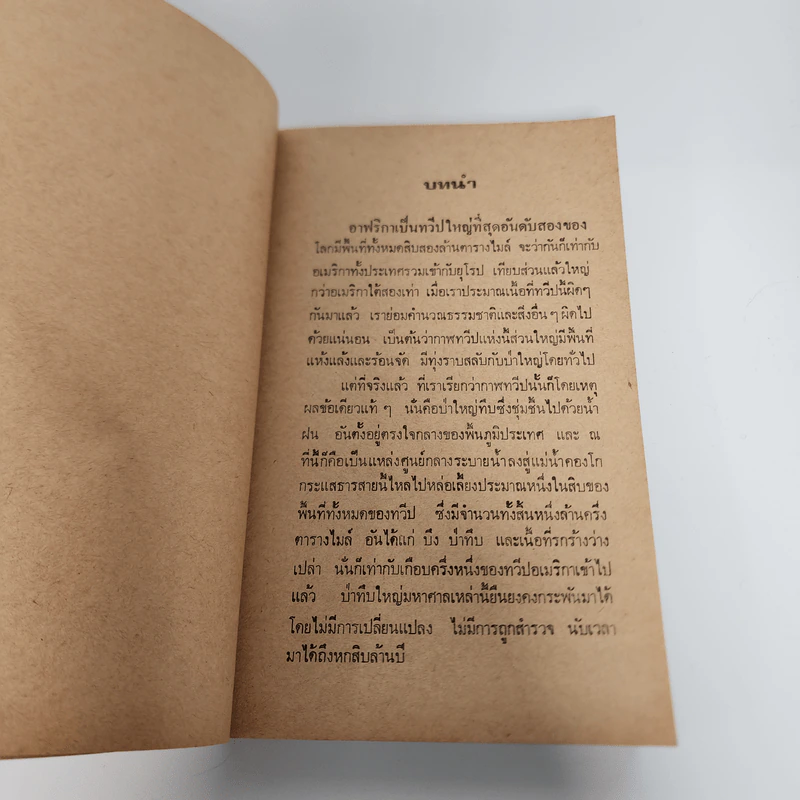 บทนำ
อาฟริกาเป็นทวีปใหญ่ที่สุดอันดับสองของ
โลกมีพื้นที่ทั้งหมดสิบสองล้านตารางไมล์ จะว่ากันก็เท่ากับ
อเมริกาทั้งประเทศรวมเข้ากับยุโรป เทียบส่วนแล้วใหญ่
กว่าอเมริกาใต้สองเท่า เมื่อเราประมาณเนื้อที่ทวีปนี้ผิดๆ
กันมาแล้ว เราย่อมคำนวณธรรมชาติและสิ่งอื่น ๆ ผิดไป
ด้วยแน่นอน เป็นต้นว่ากาฬทวีปแห่งนี้ส่วนใหญ่มีพื้นที่
แห้งแล้งและร้อนจัด มีทุ่งราบสลับกับป่าใหญ่โดยทั่วไป
แต่ที่จริงแล้ว ที่เราเรียกว่ากาฬทวีปนั้นก็โดยเหตุ
ผลข้อเดียวแท้ ๆ นั่นคือป่าใหญ่ทึบซึ่งชุ่มชื้นไปด้วยน้ำ
ฝน อันตั้งอยู่ตรงใจกลางของพื้นภูมิประเทศ และ ณ
ที่นี้ก็คือเป็นแหล่งศูนย์กลางระบายน้ำลงสู่แม่น้ำคองโก
กระแสธารสายนี้ไหลไปหล่อเลี้ยงประมาณหนึ่งในสิบของ
พื้นที่ทั้งหมดของทวีป ซึ่งมีจำนวนทั้งสิ้นหนึ่งล้านครึ่ง
ตารางไมล์ อันได้แก่ บึง ป่าทึบ และเนื้อที่รกร้างว่าง
เปล่า นั่นก็เท่ากับเกือบครึ่งหนึ่งของทวีปอเมริกาเข้าไป
แล้ว ป่าทึบใหญ่มหาศาลเหล่านี้ยืนยงคงกระพันมาได้
โดยไม่มีการเปลี่ยนแปลง ไม่มีการถูกสำรวจ นับเวลา
มาได้ถึงหกสิบล้านปี